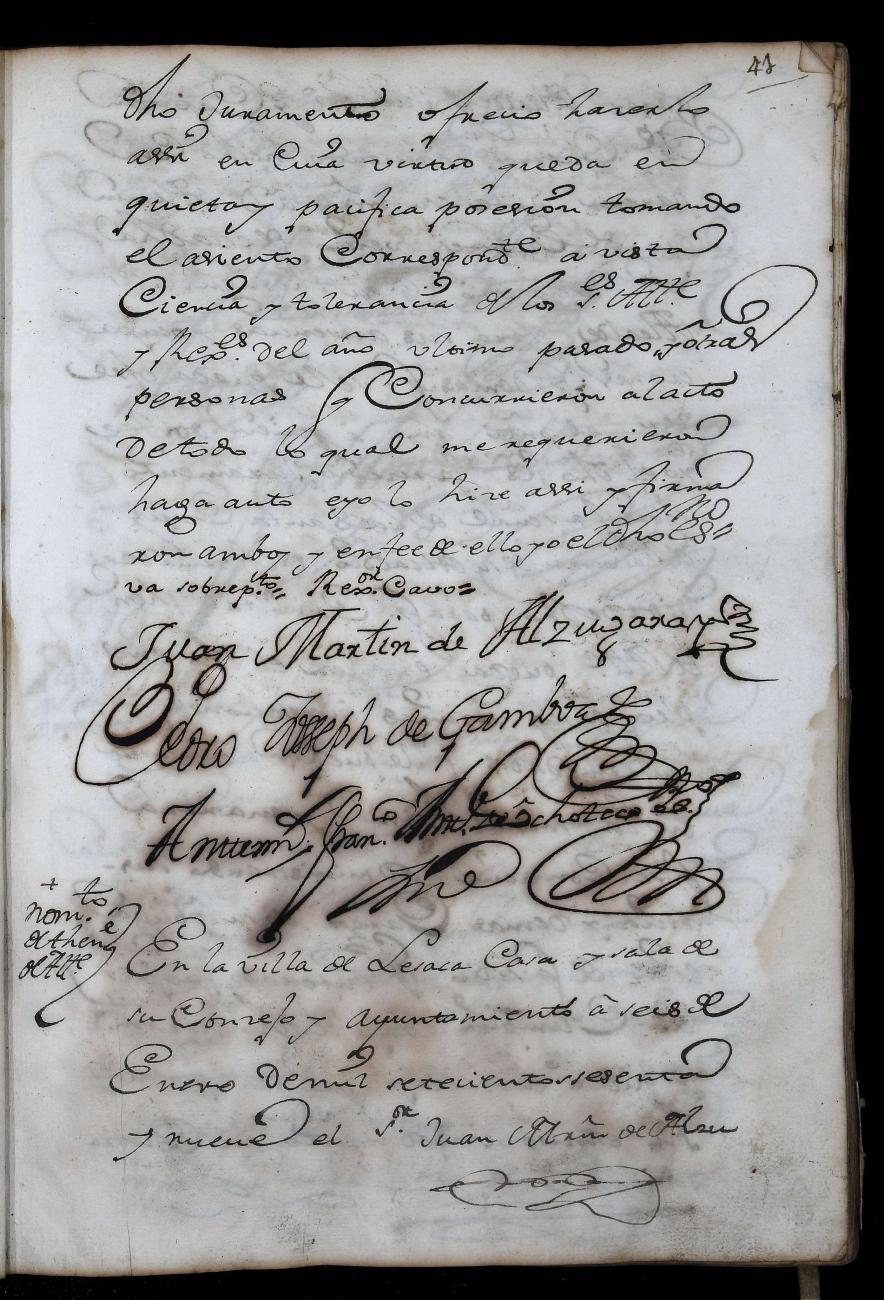 47
dho Juramento ofrecio hacerlo
assi en Cuia virtud queda en
quieta y pacifica posesion tomando
el asiento Correspondte. a vista
Ciencia y tolerancia de los s.es Alte
y Rex.es del año ultimo pasado, y otras
personas q Concurrieron al acto
de todo lo qual me requirieron
haga auto e yo lo hice assi y firma
ron ambos y en fee de ello yo el dho Es.no
va sobrep.to = Rex.or Cavo =
Juan Martin de Alzugaray
Pedro Joseph de Gamboa
Ante mi Fran.co Ant.o de Echoteco
+
nom.to
de then.e
de Alte
En la villa de Lesaca Casa y sala de
su Consejo y Ayuntamiento à seis de
Enero de mil setecientos sesenta
y nueve el s.or Juan Mrn de Alzu